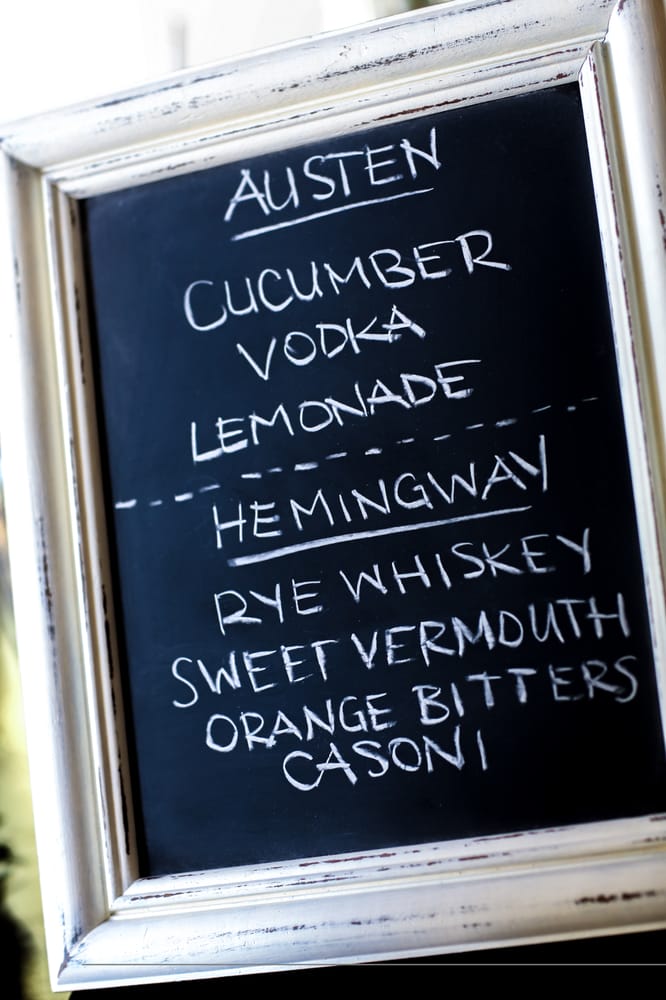 AUSTEN
CUCUMBER
VODKA
LEMONADE
HEMINGWAY
RYE WHISKEY
SWEET VERMOUTH
ORANGE BITTERS
CASONI